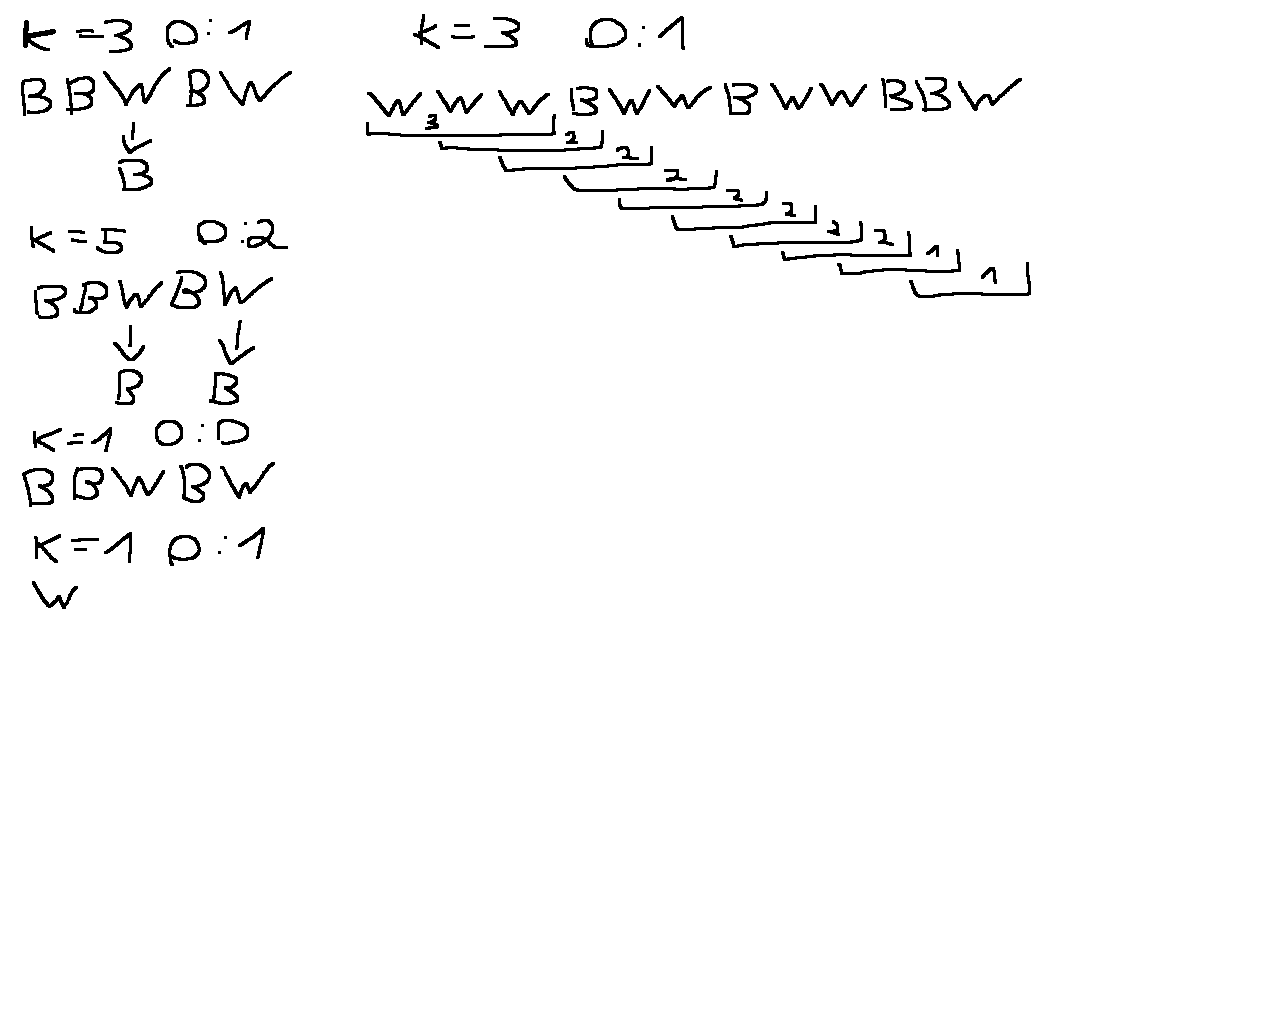 K=3 O:1
BBWBW
B
K=5 O:2
BBWBW
B B
K=1 O:0
BBWBW
K=1 O:1
W
K=3 O:1
WWWBWWBWWBBW
3
2
2
2
2
2
2
2
1
1